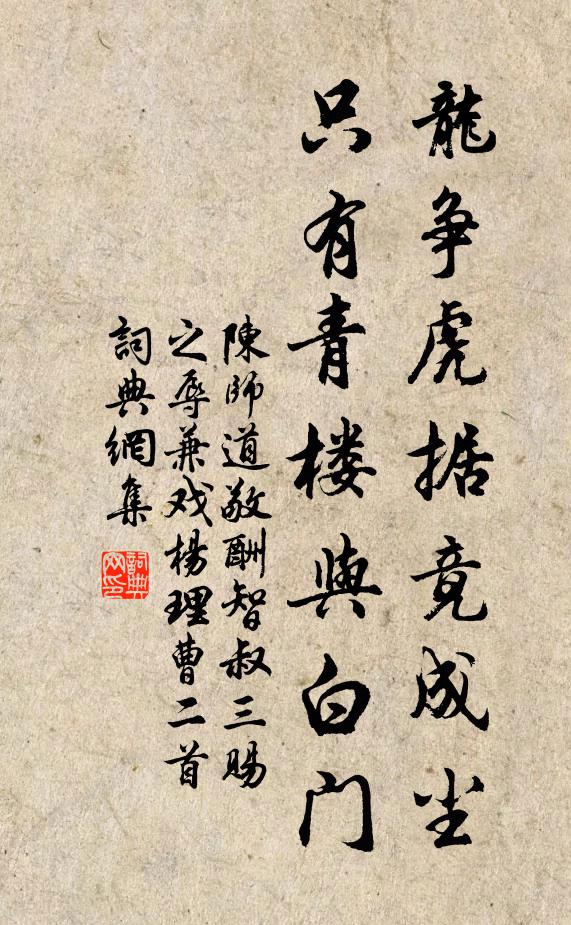 龍争虎据竟成尘
只有青楼與白门
陳師道敬酬智叔三賜
之辱兼戏楊理曹二首
詞典網集
詞典
网印